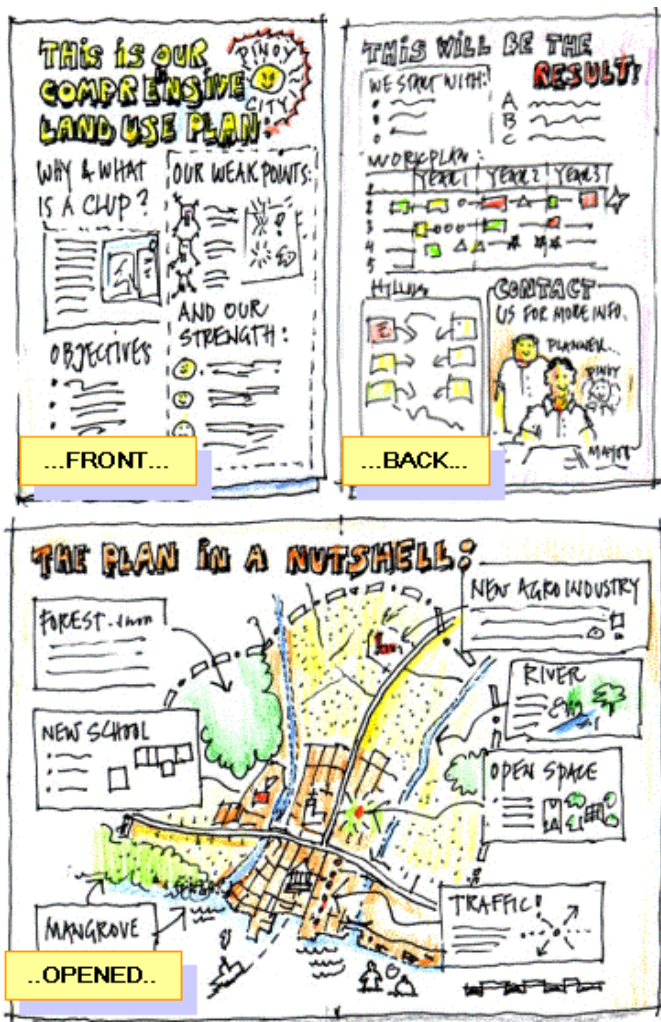 THIS IS OUR
COMPREHENSIVE
LAND USE PLAN:
PINOY
CITY
WHY & WHAT
IS A CLUP?
OUR WEAK POINTS:
AND OUR
STRENGTH:
OBJECTIVES
...FRONT...
THIS WILL BE THE
RESULT!
WE START WITH:
A
B
C
WORKPLAN:
YEAR 1
YEAR 2
YEAR 3
1
2
3
4
5
CONTACT
US FOR MORE INFO.
PLANNER...
PINOY
MAYOR
...BACK...
THE PLAN IN A NUTSHELL:
FOREST
NEW AGRO INDUSTRY
RIVER
NEW SCHOOL
OPEN SPACE
TRAFFIC!
MANGROVE
..OPENED..